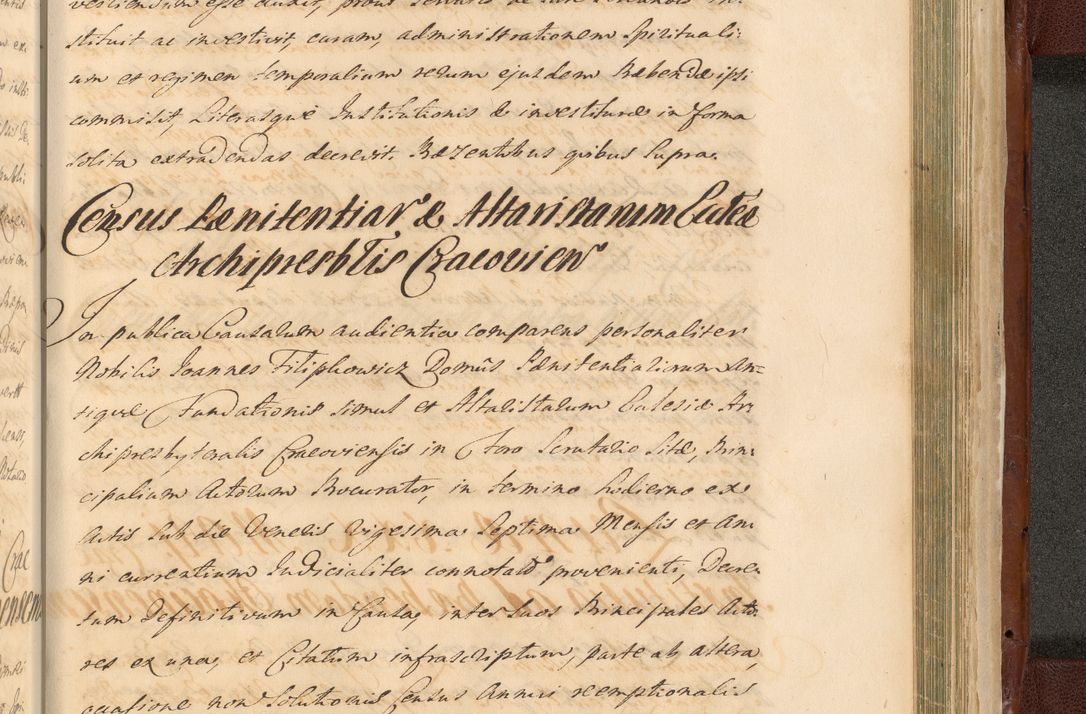 stituit ac investivit, curam, administrationem Spirituali:
um et regimen temporalium rerum ejusdem Præbendæ ipsi
commisit, Literasque Institutionis & investituræ in forma
solita extradendas decrevit. Præsentibus quibus supra.
Census Pænitentiar & Altaristarum Eccleæ
Archipresbtlis Cracovien
In publica Causarum audientia comparens personaliter
Nobilis Joannes Filipkowicz Domûs Pænitentialiarum An:
tiquæ Fundationis simul et Altaristarum Ecclesiæ Ar
chipresbyteralis Cracoviensis in Foro Scrutario Sitæ, Prin:
cipalium Actorum Procurator, in termino hodierno ex
Actis sub die Veneris Vigesima Septima Mensis et An
ni currentium Judicialiter connotato provenienti, Decre
tum Definitivum in Causa, inter suos Principales Acto
res ex una, et Citatum infrascriptum, parte ab altera,
occasione non Solutionis Census Annui reemptionalis